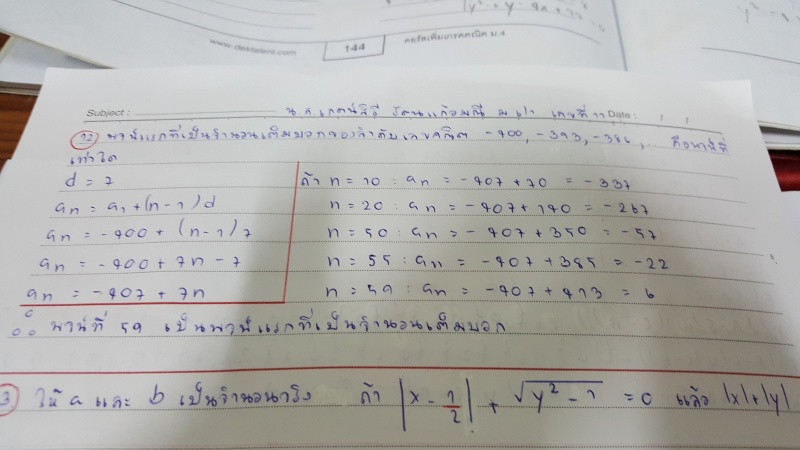 www.dektalent.com 144 คอร์สเพิ่มเกรดคณิต ม.4
Subject : น.ส. เลขที่ 11 Date : / /
12 พจน์แรกที่เป็นจำนวนเต็มบวกของลำดับเลขคณิต -400, -393, -386, ... คือพจน์ที่
เท่าใด
d = 7
an = a1 + (n-1)d
an = -400 + (n-1)7
an = -400 + 7n - 7
an = -407 + 7n
ถ้า n = 10 : an = -407 + 70 = -337
n = 20 : an = -407 + 140 = -267
n = 50 : an = -407 + 350 = -57
n = 55 : an = -407 + 385 = -22
n = 59 : an = -407 + 413 = 6
∴ พจน์ที่ 59 เป็นพจน์แรกที่เป็นจำนวนเต็มบวก
3 ให้ a และ b เป็นจำนวนจริง ถ้า |x - 1/2| + √(y² - 1) = 0 แล้ว |x|+|y|